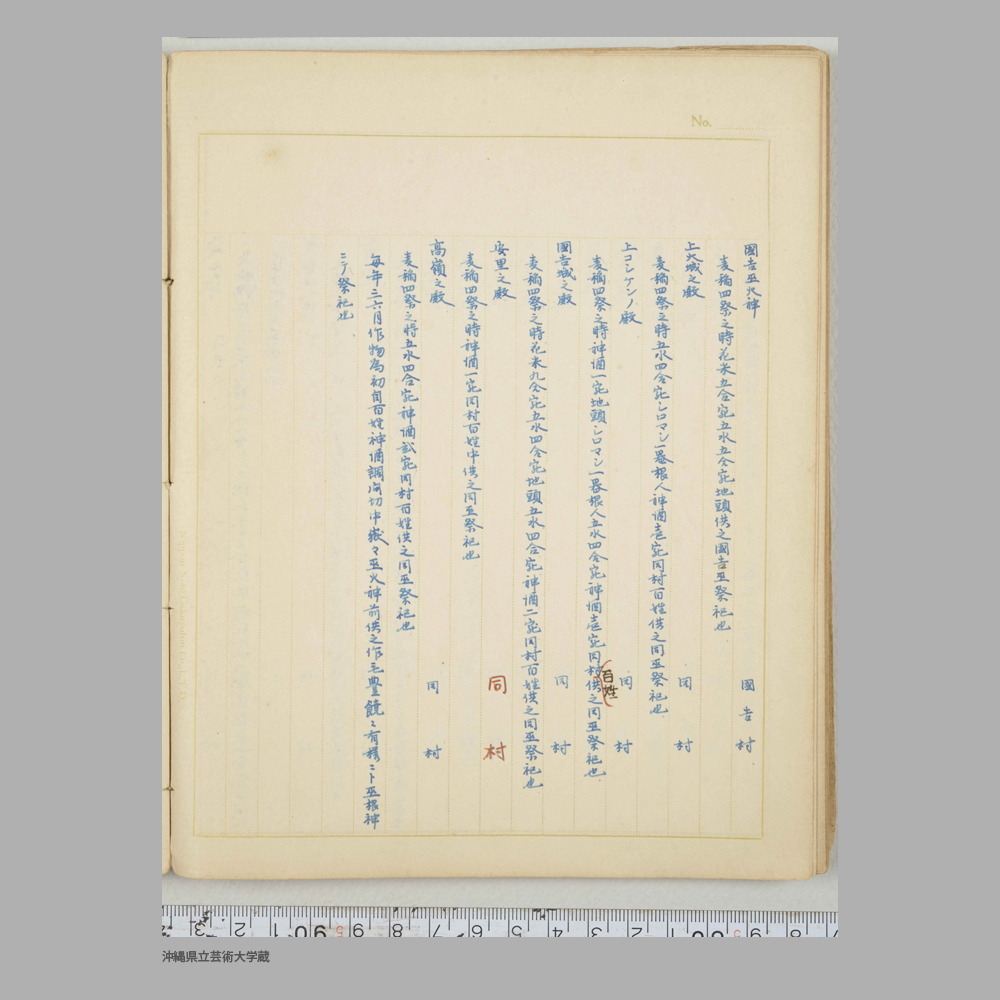 No.
國吉巫火神
國吉村
麦稲四祭之時花米五合完五水五合完地頭供之國吉巫祭祀也
上大城之殿
同村
麦稲四祭之時五水四合完シロマシ一器根人神酒壱完同村百姓供之同巫祭祀也
上コシケンノ殿
同村
麦稲四祭之時神酒一完地頭シロマシ一器根人五水四合完神酒壱完同村百姓供之同巫祭祀也
國吉城之殿
同村
麦稲四祭之時花米九合完五水四合完地頭五水四合完神酒二完同村百姓供之同巫祭祀也
安里之殿
同村
麦稲四祭之時神酒一完同村百姓中供之同巫祭祀也
高嶺之殿
同村
麦稲四祭之時五水四合完神酒弐完同村百姓供之同巫祭祀也
毎年三六月作物為初自百姓神酒調宿切中嶽々巫火神前供之作毛豊饒ニ有様ニト巫根神
ニテ祭祀也
沖縄県立芸術大学蔵